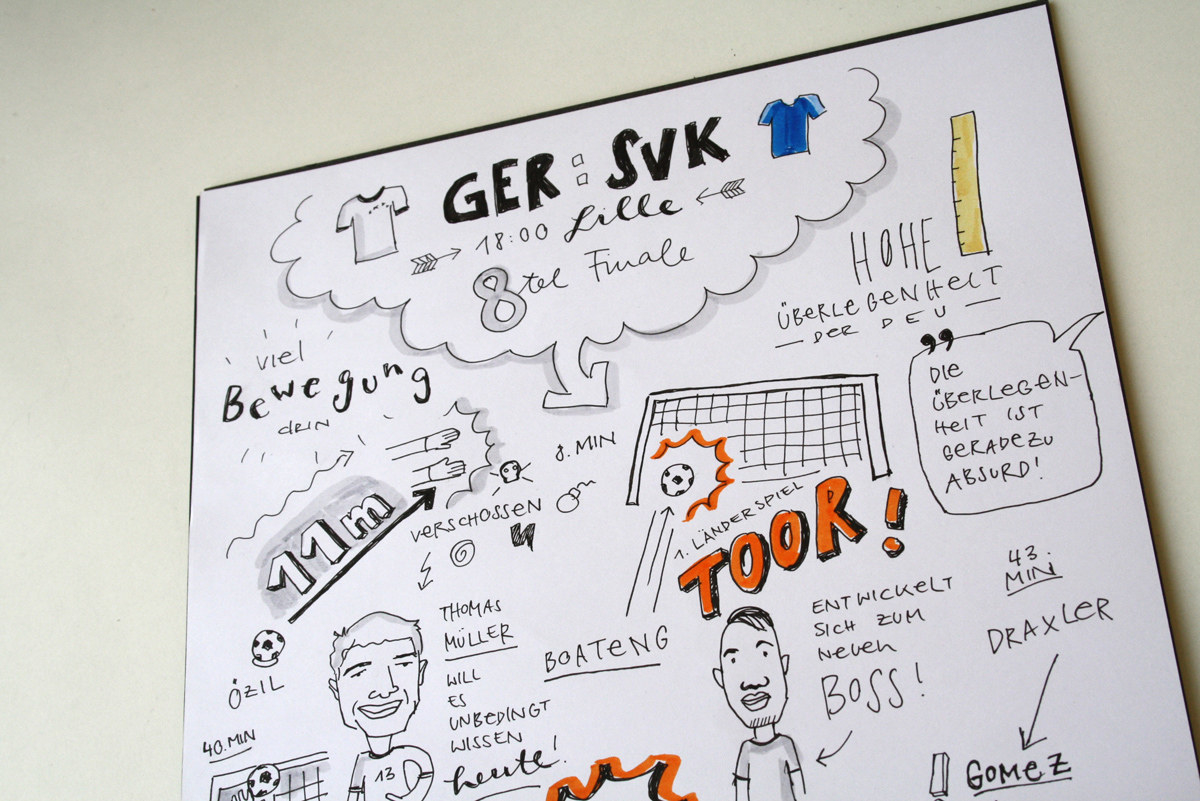 GER : SVK
18:00 Lille
8tel Finale
HOHE
ÜBERLEGENHEIT
DER DEU
viel
Bewegung
drin
„DIE
ÜBERLEGEN-
HEIT IST
GERADEZU
ABSURD!
11m
VERSCHOSSEN
ÖZIL
8. MIN
1. LÄNDERSPIEL
TOOR!
BOATENG
THOMAS
MÜLLER
WILL
ES
UNBEDINGT
WISSEN
heute!
13
ENTWICKELT
SICH ZUM
NEUEN
BOSS!
43.
MIN
DRAXLER
GOMEZ
40. MIN